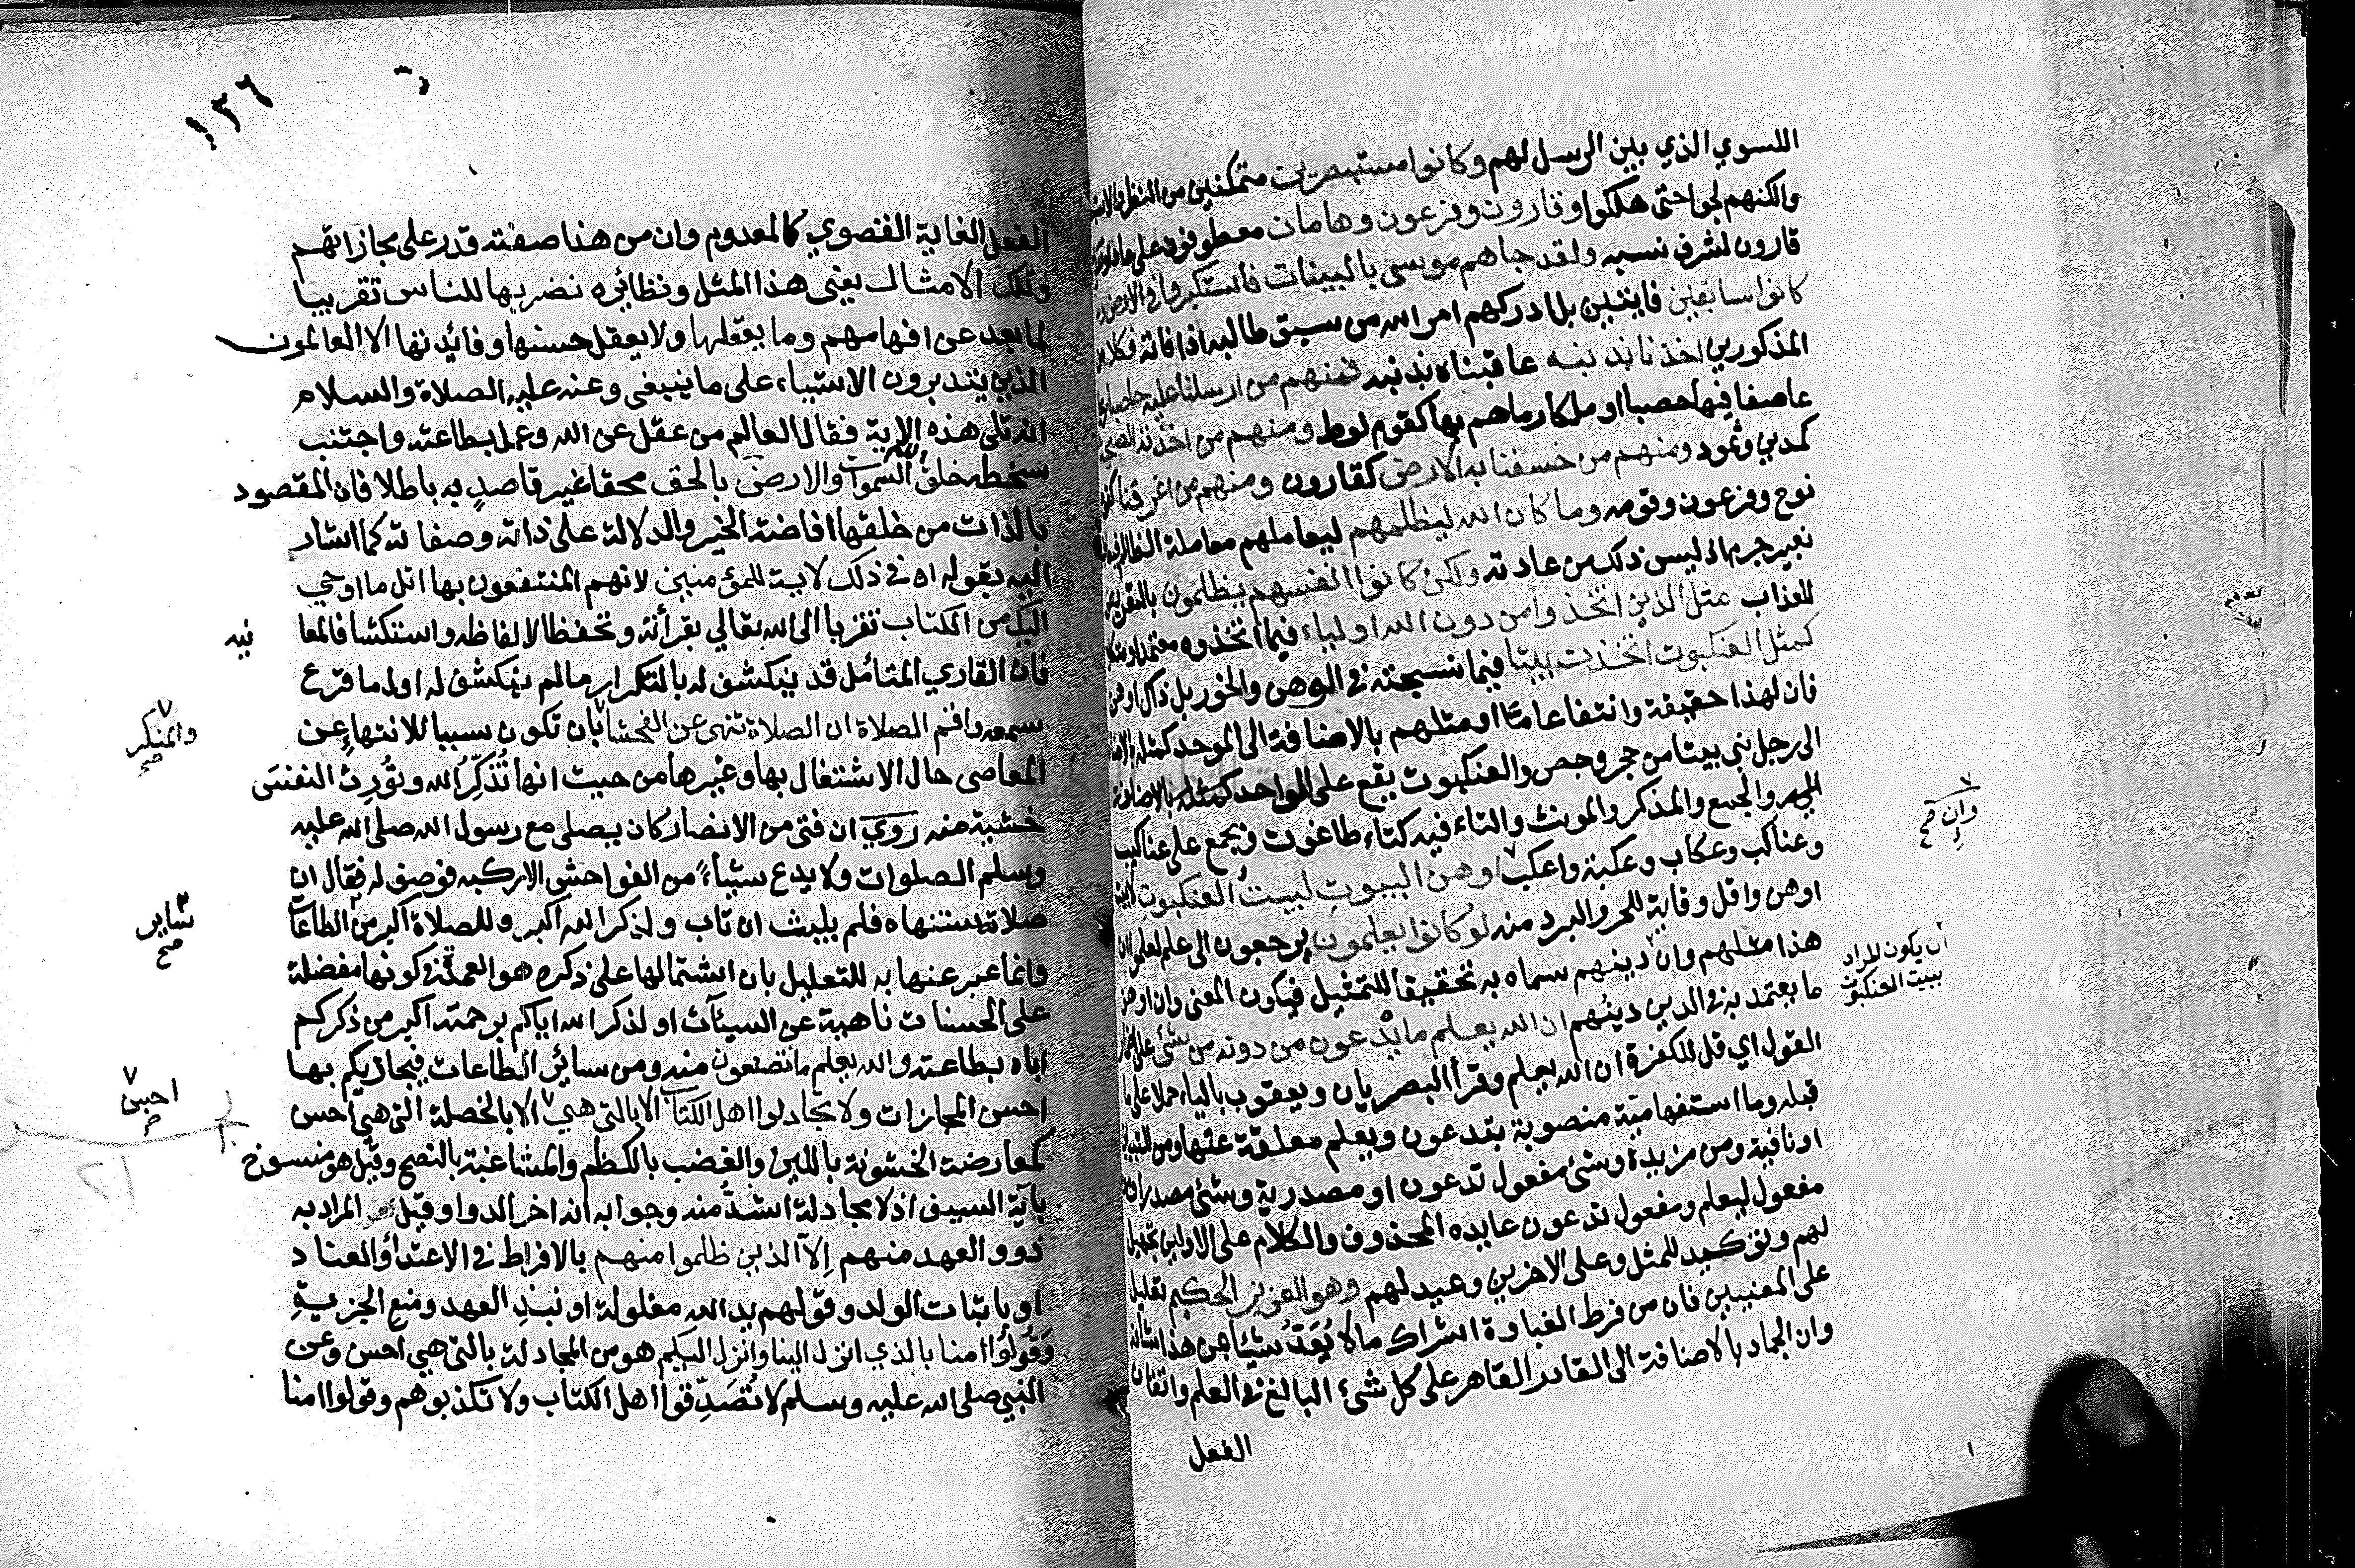 السوي الذي بين الرسل لهم وكانوا مستبصرين متمكنين من النظر والاستبصار
ولكنهم لجوا حتى هلكوا وقارون وفرعون وهامان معطوفون على عاد وتقديم
قارون لشرف نسبه ولقد جاهم موسى بالبينات فاستكبروا في الارض وما
كانوا سابقين فايتين بل ادركهم امر الله من سبق طالبه اذا فاته فكلا من
المذكورين اخذنا بذنبه عاقبناه بذنبه فمنهم من ارسلنا عليه حاصبا ريحا
عاصفا فيها حصبا او ملكا رماهم بها كقوم لوط ومنهم من اخذته الصيحة
كمدين وثمود ومنهم من خسفنا به الارض كقارون ومنهم من اغرقنا كقوم
نوح وفرعون وقومه وما كان الله ليظلمهم ليعاملهم معاملة الظالم فيعاقبهم
بغير جرم اذ ليس ذلك من عادته ولكن كانوا انفسهم يظلمون بالتعريض
للعذاب مثل الذين اتخذوا من دون الله اولياء فيما اتخذوه معتمدا ومتكلا
كمثل العنكبوت اتخذت بيتا فيما نسجته في الوهن والخور بل ذاك اوهن
فان لهذا حقيقة وانتفاعا ما او مثلهم بالاضافة الى الموحد كمثله بالاضافة
الى رجل بنى بيتا من حجر وجص والعنكبوت يقع على الواحد كمثله بالاضافة
اليه والجمع والمذكر والمونث والتاء فيه كتاء طاغوت ويجمع على عناكيب
وعناكب وعكاب وعكبة واعكب اوهن البيوت لبيت العنكبوت لا بيت
وان صح
اوهن واقل وقاية للحر والبرد منه لو كانوا يعلمون يرجعون الى علم لعلموا ان
هذا مثلهم وان دينهم سماه به تحقيقا للتمثيل فيكون المعنى وان اوهن
ان يكون المراد
ببيت العنكبوت
ما يعتمد به في الدين دينهم ان الله يعلم ما يدعون من دونه من شئ على اضمار
القول اي قل للكفرة ان الله يعلم وقرأ البصريان ويعقوب بالياء حملا على ما
قبله وما استفهامية منصوبة بتدعون ويعلم معلقة عنها ومن للتبيين
او نافية ومن مزيدة وشئ مفعول تدعون او مصدرية وشئ مصدر او
مفعول ليعلم ومفعول تدعون عايده المحذوف والكلام على الاولين تجهيل
لهم وتوكيد للمثل وعلى الاخرين وعيد لهم وهو العزيز الحكيم تعليل
على المعنيين فان من فرط الغباوة اشراك ما لا يُعَدُّ شيئا بمن هذا شانه
وان الجماد بالاضافة الى القادر القاهر على كل شئ البالغ في العلم واتقان
الفعل
١٣٦
الفعل الغاية القصوي كالمعدوم وان من هذا صفته قدر على مجازاتهم
وتلك الامثال يعني هذا المثل ونظائره نضربها للناس تقريبا
لما بعد عن افهامهم وما يعقلها ولا يعقل حسنها وفائيدتها الا العالمون
الذين يتدبرون الاشياء على ما ينبغي وعنه عليه الصلاة والسلام
انه تلى هذه الاية فقال العالم من عقل عن الله وعمل بطاعته واجتنب
سخطه خلق الله السموات والارض بالحق محقا غير قاصدٍ به باطلا فان المقصود
بالذات من خلقها افاضة الخير والدلالة على ذاته وصفاته كما اشار
اليه بقوله ان في ذلك لاية للمؤمنين لانهم المنتفعون بها اتل ما اوحي
اليك من الكتاب تقربا الى الله تعالي بقرأته وتحفظا لالفاظه واستكشافا لمعانيه
فان القاري المتأمل قد ينكشف له بالتكرار ما لم ينكشف له اول ما قرع
سمعه واقم الصلاة ان الصلاة تنهى عن الفحشا بان تكون سببا للانتهاء عن
والمنكر صح
المعاصي حال الاشتغال بها وغيرها من حيث انها تُذَكِّرُ الله وتُورِث النفسَ
خشية منه رَوِيَ ان فتى من الانصار كان يصلى مع رسول الله صلى الله عليه
وسلم الصلوات ولا يدع شيباءً من الفواحش الا ركبه فوصف له فقال ان
صلاته ستنهاه فلم يلبث ان تاب ولذكر الله اكبر وللصلاة اكبر من الطاعات
ساير صح
وانما عبر عنها به للتعليل بان اشتمالها على ذكره هو العمدة في كونها مفضلة
على الحسنات ناهية عن السيئآت او لذكر الله اياكم برحمته اكبر من ذكركم
اياه بطاعته والله يعلم ما تصنعون منه ومن سائر الطاعات فيجازيكم بها
احسن المجازات ولا تجادلوا اهل الكتاب الا بالتي هي الا بالخصلة التي هي احسن
احسن صح
كمعارضة الخشونة باللين والغضب بالكظم والمشاغبة بالنصح وقيل هو منسوخ
بآية السيف اذ لا مجادلة اشدُّ منه وجوابه انه اخر الدوا وقيل المراد به
ذوو العهد منهم إلاّ الذين ظلموا منهم بالافراط في الاعتدأ والعناد
او باثبات الولد وقولهم يد الله مغلولة او نبذِ العهد ومنع الجزيةِ
وَقُولُوا امنا بالذي انزل الينا وانزل اليكم هو من المجادلة بالتي هي احسن وعن
النبي صلى الله عليه وسلم لا تُصَدِّقوا اهل الكتاب ولا تكذبوهم وقولوا امنا